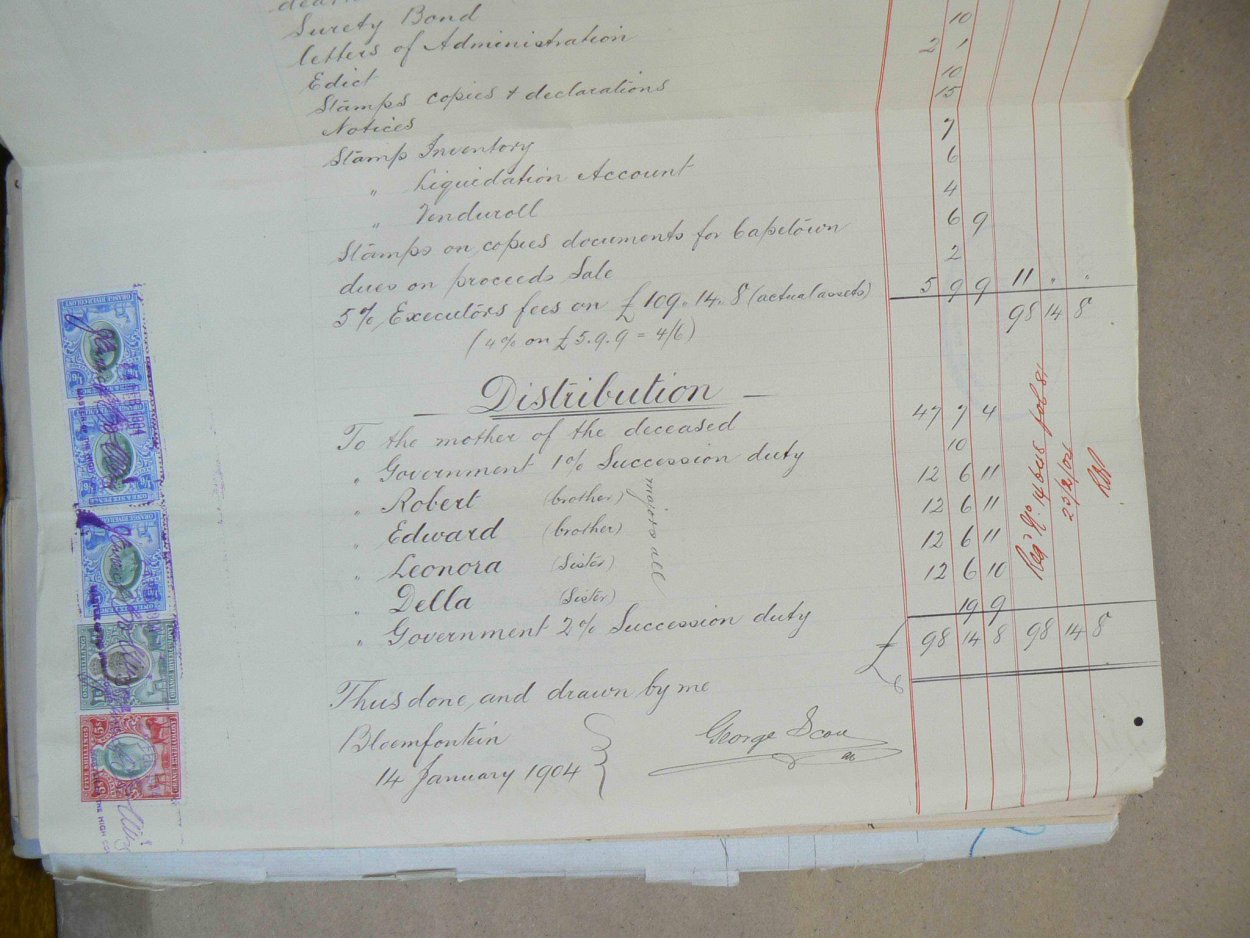 Surety Bond 10
Letters of Administration 2 1
Edict 10
Stamps copies & declarations 15
Notices 7
Stamp Inventory 6
" Liquidation Account 4
" Venduroll 6 9
Stamps on copies documents for Capetown 2
dues on proceeds Sale
5% Executors fees on £109.14.8 (actual assets) 5 9 9 11 " "
(4% on £5.9.9 = 4/6) 98 14 8
Distribution
To the mother of the deceased 47 7 4
" Government 1% Succession duty 10
" Robert (brother) 12 6 11
" Edward (brother) 12 6 11
" Leonora (Sister) 12 6 11
" Della (Sister) 12 6 10
" Government 2% Succession duty 19 9
£ 98 14 8 98 14 8
majors all
Thus done, and drawn by me
Bloemfontein
14 January 1904
George
ORANGE RIVER COLONY
ONE & SIX PENCE